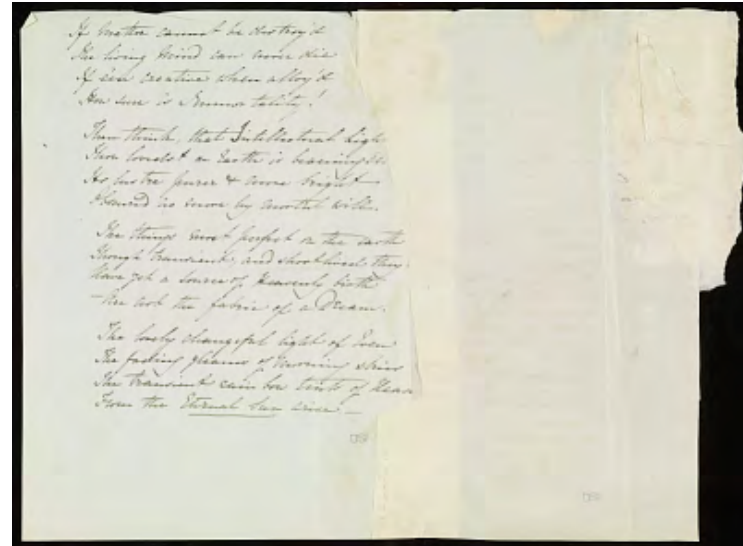 If matter cannot be destroy'd
The living mind can never die
If e'en creative when alloy'd
How sure is Immortality!
Then think, that Intellectual Ligh
Thou lovedst on Earth is burning
Its lustre purer & more bright
Obscured no more by mortal will.
The things most perfect on the earth
Though transient, and short lived they
Have yet a source of Heavenly birth
– Are not the fabric of a Dream.
The lovely changeful light of Even
The fading gleams of morning skies
The transient rain bow tints of Heav
From the Eternal Sun arise –